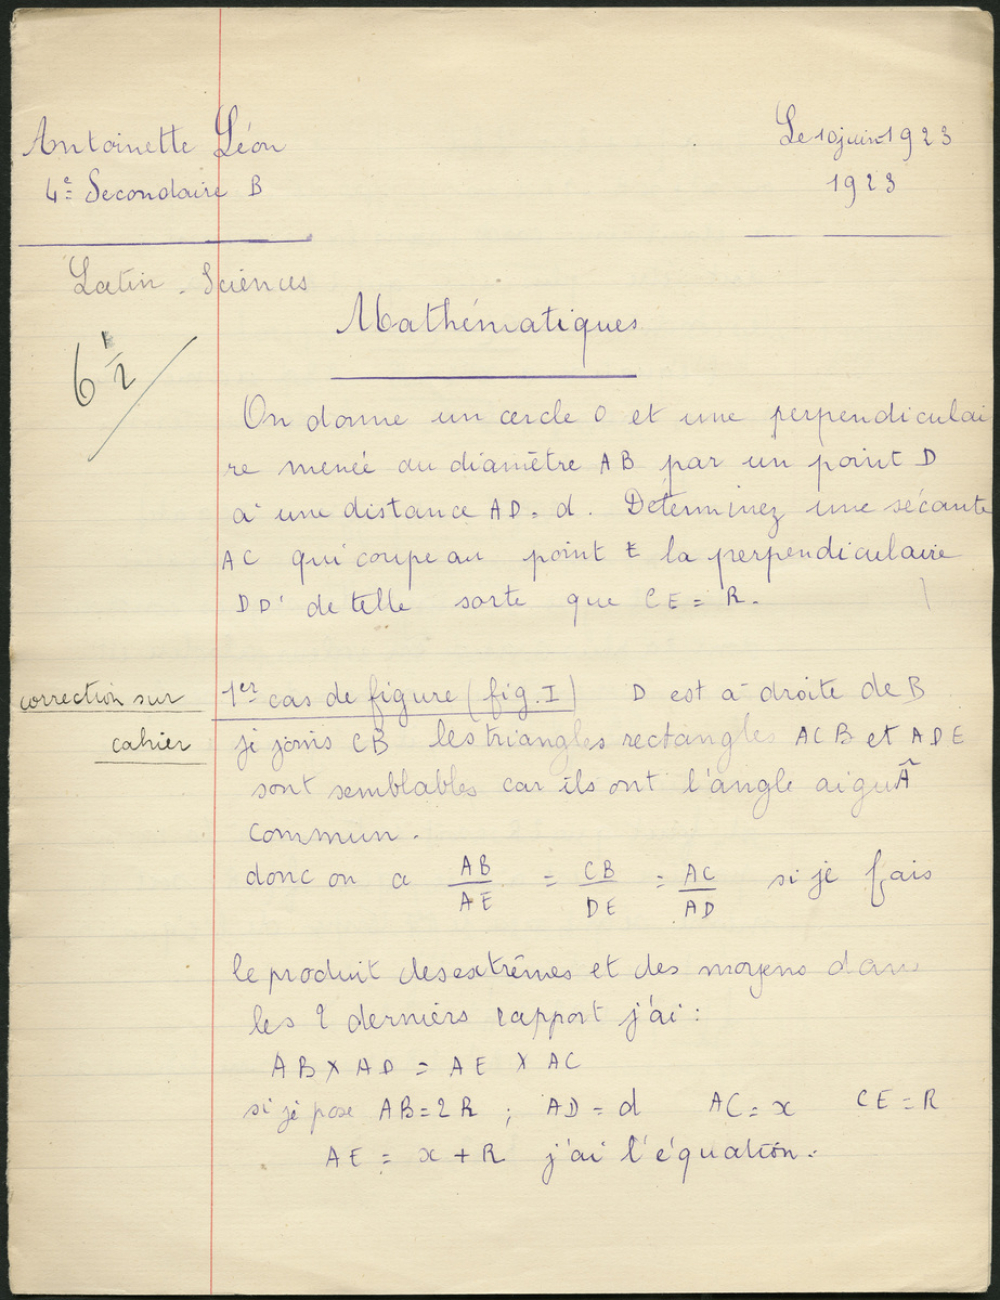 Antoinette Léon
Le 10 juin 1923
4e Secondaire B
1923
Latin - Sciences
Mathématiques
6 1/2
On donne un cercle O et une perpendiculai
re menée au diamètre AB par un point D
à une distance AD = d. Déterminez une sécante
AC qui coupe au point E la perpendiculaire
DD' de telle sorte que CE = R.
correction sur
cahier
1er cas de figure (fig. I) D est à droite de B
je joins CB les triangles rectangles ACB et ADE
sont semblables car ils ont l'angle aigu Â
commun.
donc on a AB/AE = CB/DE = AC/AD si je fais
le produit des extrêmes et des moyens dans
les 2 derniers rapport j'ai :
AB X AD = AE X AC
si je pose AB = 2R ; AD = d AC = x CE = R
AE = x + R j'ai l'équation :